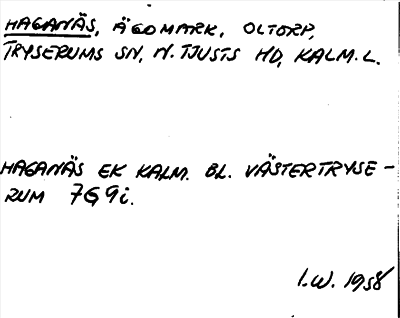 HAGANÄS, ÄGOMARK, OLTORP,
TRYSERUMS SN, N. TJUSTS HD, KALM. L.
HAGANÄS EK KALM. BL. VÄSTERTRYSE-
RUM 7G9i.
I.W. 1958